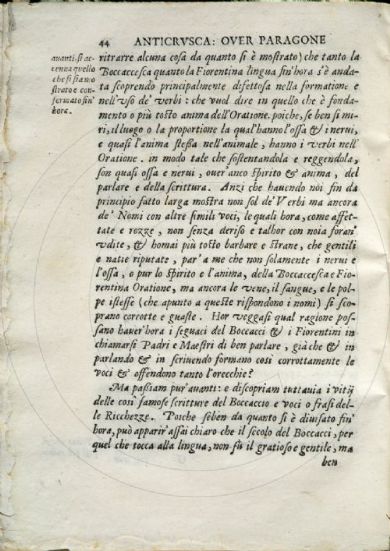 44 ANTICRVSCA: OVER PARAGONE
auanti si ac-
cenna quello
che si siamo
strato e con-
fermato fin'
hora.
ritrarre alcuna cosa da quanto si è mostrato) che tanto la
Boccaccesca quanto la Fiorentina lingua fin'hora s'è anda-
ta scoprendo principalmente difettosa nella formatione e
nell'vso de' verbi: che vuol dire in quello che è fonda-
mento o più tosto anima dell'Oratione. poiche, se ben si mi-
ri, il luogo o la proportione la qual'hanno l'ossa & i nerui,
e quasi l'anima stessa nell'animale, hanno i verbi nell'
Oratione. in modo tale che sostentandola e reggendola,
son quasi ossa e nerui, ouer'anco spirito & anima, del
parlare e della scrittura. Anzi che hauendo noi fin da
principio fatto larga mostra non sol de' Verbi ma ancora
de' Nomi con altre simili voci, le quali hora, come affet-
tate e rozze, non senza deriso e talhor con noia foran'
vdite, & homai più tosto barbare e strane, che gentili
e natie riputate, par'a me che non solamente i nerui e
l'ossa, o pur lo spirito e l'anima, della Boccaccesca e Fio-
rentina Oratione, ma ancora le vene, il sangue, e le pol-
pe istesse (che apunto a queste rispondono i nomi) si sco-
prano corrotte e guaste. Hor veggasi qual ragione pos-
sano hauer'hora i seguaci del Boccacci & i Fiorentini in
chiamarsi Padri e Maestri di ben parlare, già che & in
parlando & in scriuendo formano così corrottamente le
voci & offendono tanto l'orecchie?
Ma passiam pur'auanti: e discopriam tuttauia i vitij
delle così famose scritture del Boccaccio e voci o frasi del-
le Ricchezze. Poiche seben da quanto si è diuisato fin'
hora, può apparir'assai chiaro che il secolo del Boccacci, per
quel che tocca alla lingua, non fù il gratioso e gentile, ma
ben